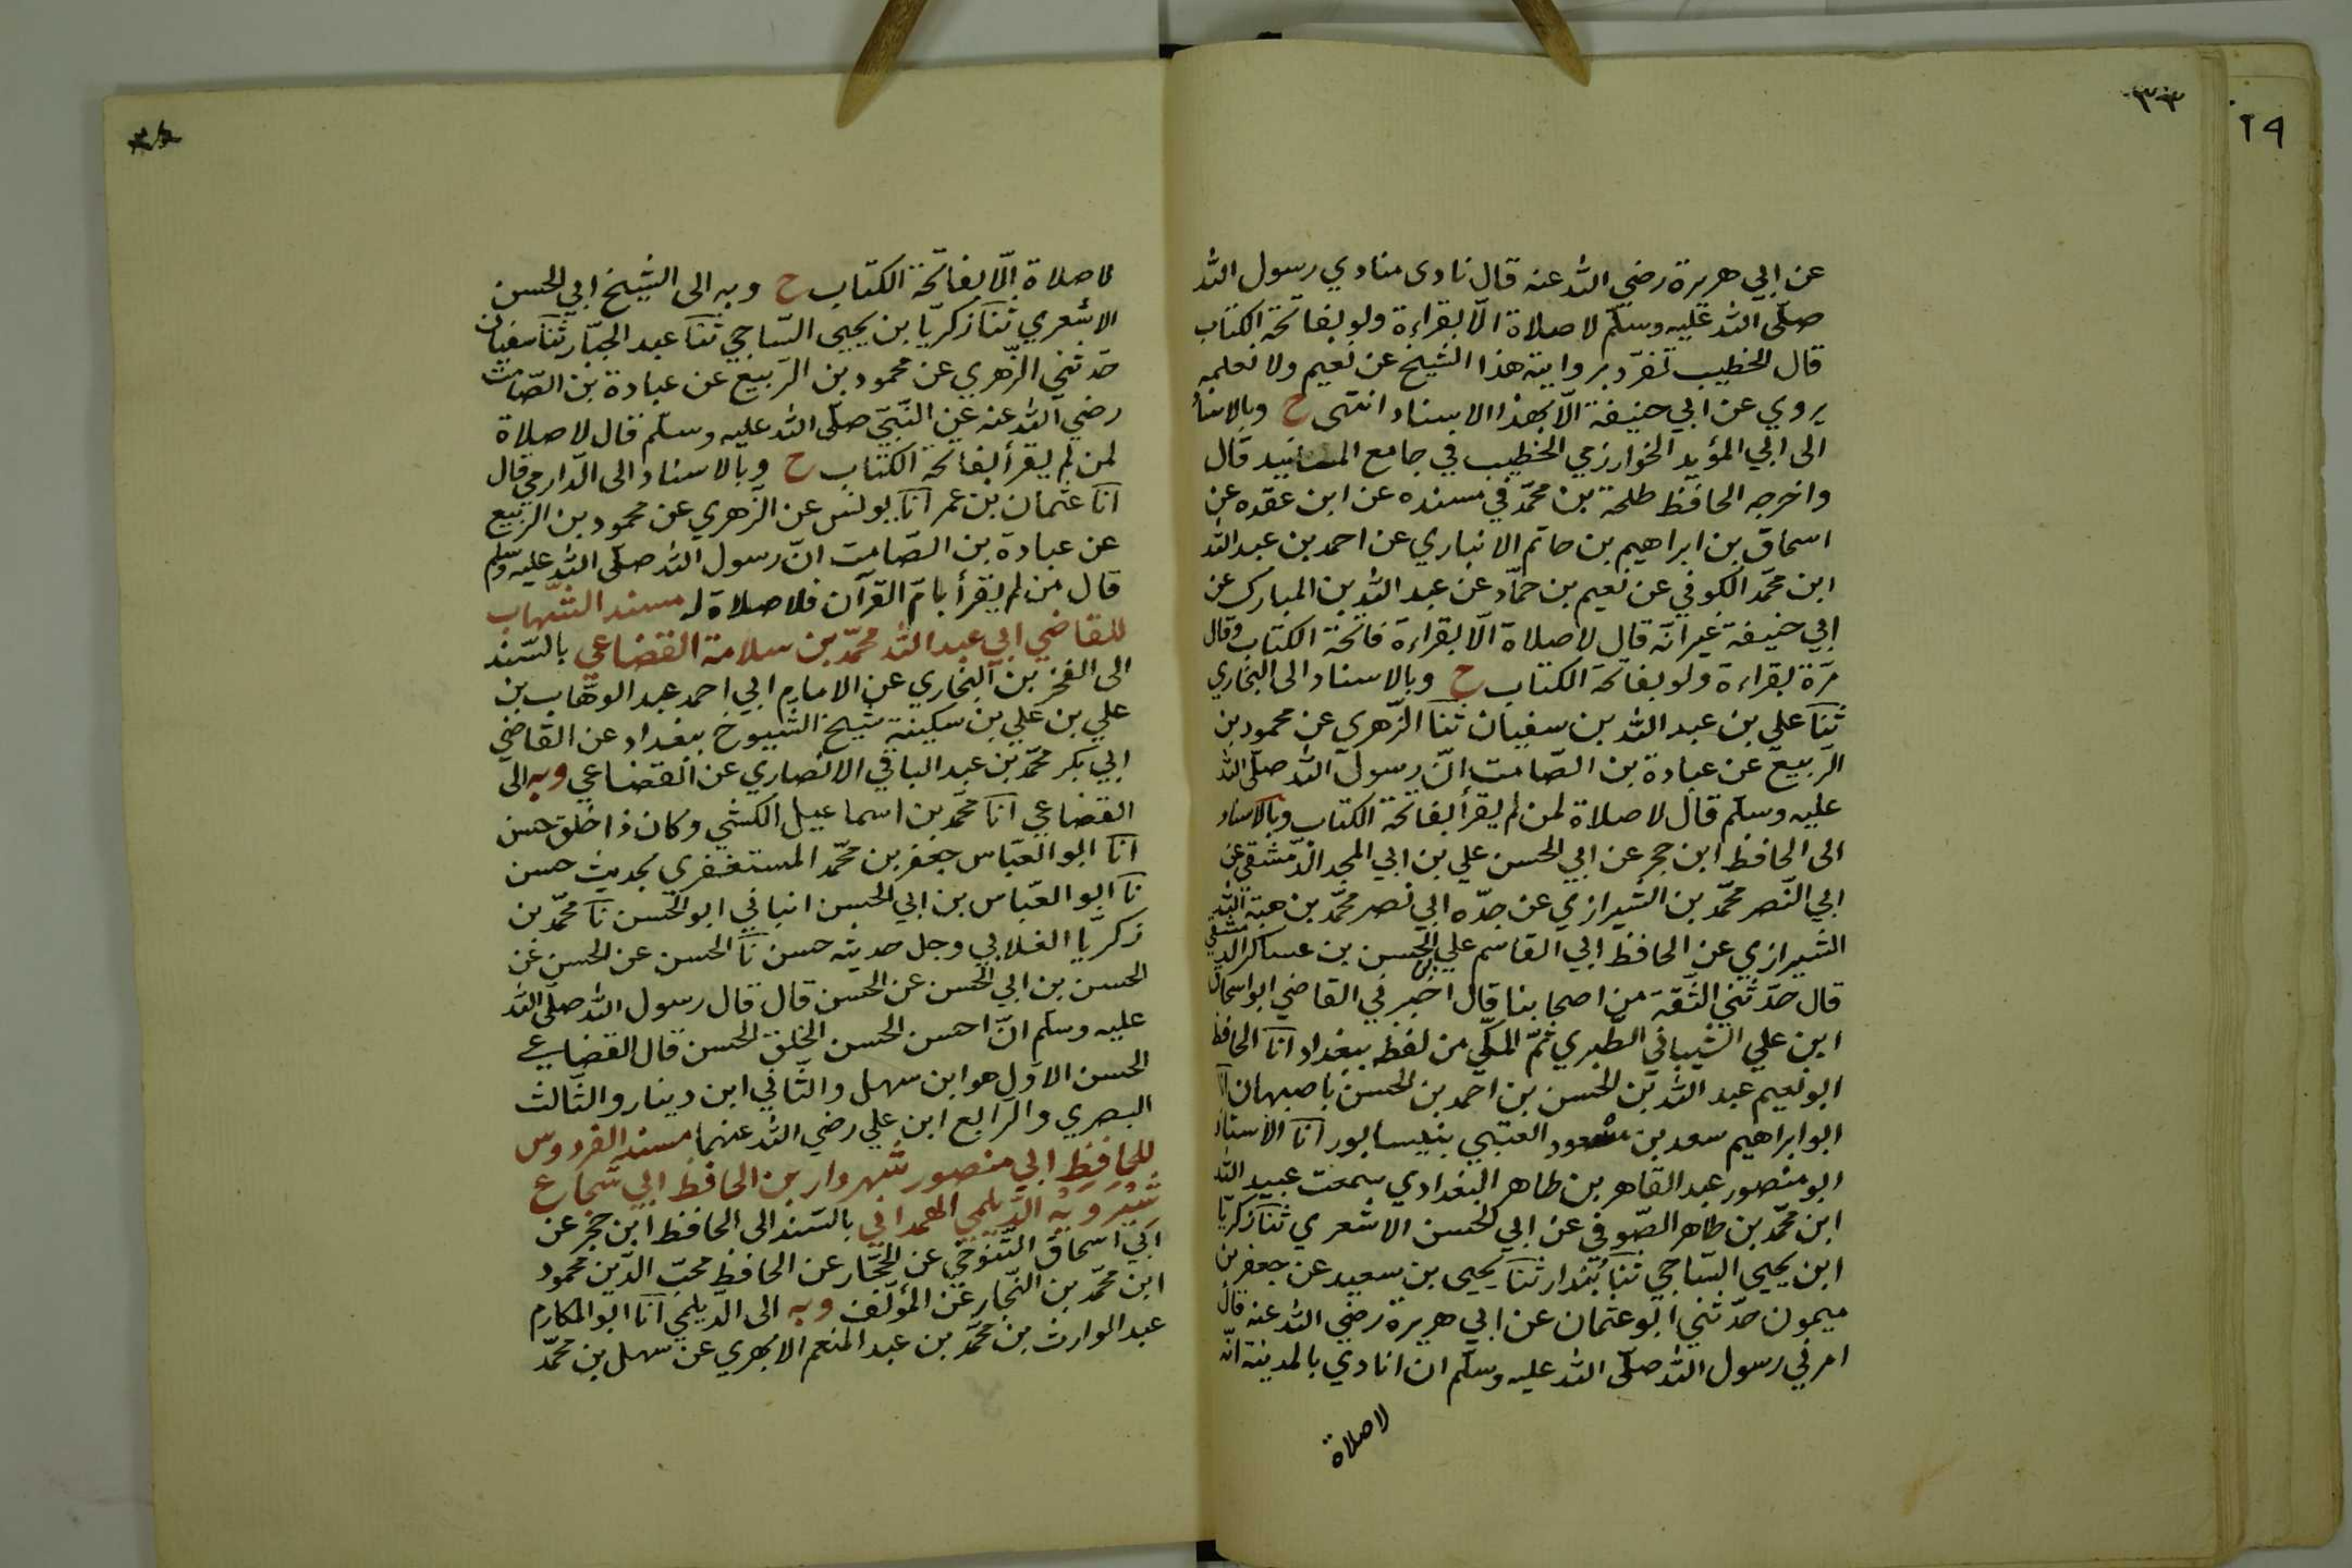 ٢٩
٣٣
عن ابي هريرة رضي الله عنه قال نادى منادي رسول الله
صلّى الله عليه وسلّم لا صلاة الّا بقراءة ولو بفاتحة الكتاب
قال الخطيب تفرّد بروايته هذا الشيخ عن نعيم ولا نعلمه
يروي عن ابي حنيفة الّا بهذا الاسناد انتهى ح وبالاسناد
الى ابي المؤيد الخوارزمي الخطيب في جامع المسانيد قال
واخرجه الحافظ طلحة بن محمّد في مسنده عن ابن عقده عن
اسحاق بن ابراهيم بن حاتم الانباري عن احمد بن عبد الله
ابن محمّد الكوفي عن نعيم بن حمّاد عن عبد الله بن المبارك عن
ابي حنيفة غير انّه قال لا صلاة الّا بقراءة فاتحة الكتاب وقال
مرّة بقراءة ولو بفاتحة الكتاب ح وبالاسناد الى البخاري
ثنا علي بن عبد الله بن سفيان ثنا الزّهري عن محمود بن
الرّبيع عن عبادة بن الصّامت انّ رسول الله صلّى الله
عليه وسلّم قال لا صلاة لمن لم يقرأ بفاتحة الكتاب وبالاسناد
الى الحافظ ابن حجر عن ابي الحسن علي بن ابي المجد الدّمشقي عن
ابي النّصر محمّد بن الشّيرازي عن جدّه ابي نصر محمّد بن هبة الله
الشّيرازي عن الحافظ ابي القاسم علي بن الحسن بن عساكر الدمشقي
قال حدّثني الثّقة من اصحابنا قال اخبرني القاضي ابو اسحاق
ابن علي الشّيباني الطّبري ثمّ المكّي من لفظه ببغداد انا الحافظ
ابو نعيم عبد الله بن الحسن بن احمد بن الحسن باصبهان انا
ابو ابراهيم سعد بن مسعود العتبي بنيسابور انا الاستاذ
ابو منصور عبد القاهر بن طاهر البغدادي سمعت عبيد الله
ابن محمّد بن طاهر الصّوفي عن ابي الحسن الاشعري ثنا زكريّا
ابن يحيى السّاجي ثنا بُنْدار ثنا يحيى بن سعيد عن جعفر بن
ميمون حدّثني ابو عثمان عن ابي هريرة رضي الله عنه قال
امرني رسول الله صلّى الله عليه وسلّم ان انادي بالمدينة انّه
لا صلاة
لا صلاة الّا بفاتحة الكتاب ح وبه الى الشّيخ ابي الحسن
الاشعري ثنا زكريّا بن يحيى السّاجي ثنا عبد الجبّار ثنا سفيان
حدّثني الزّهري عن محمود بن الرّبيع عن عبادة بن الصّامت
رضي الله عنه عن النّبيّ صلّى الله عليه وسلّم قال لا صلاة
لمن لم يقرأ بفاتحة الكتاب ح وبالاسناد الى الدّارمي قال
انا عثمان بن عمر انا يونس عن الزّهري عن محمود بن الرّبيع
عن عبادة بن الصّامت انّ رسول الله صلّى الله عليه وسلم
قال من لم يقرأ بامّ القرآن فلا صلاة له مسند الشّهاب
للقاضي ابي عبد الله محمّد بن سلامة القضاعي بالسّند
الى الفخر بن البخاري عن الامام ابي احمد عبد الوهّاب بن
علي بن علي بن سكينة شيخ الشّيوخ ببغداد عن القاضي
ابي بكر محمّد بن عبد الباقي الانصاري عن القضاعي وبه الى
القضاعي انا محمّد بن اسماعيل الكشي وكان ذا خلق حسن
انا ابو العبّاس جعفر بن محمّد المستغفري بحديث حسن
نا ابو العبّاس بن ابي الحسن انباني ابو الحسن نا محمّد بن
زكريّا الغلابي وجل حديثه حسن نا الحسن عن الحسن عن
الحسن بن ابي الحسن عن الحسن قال قال رسول الله صلّى الله
عليه وسلّم انّ احسن الحسن الخلق الحسن قال القضاعي
الحسن الاوّل هو ابن سهل والثّاني ابن دينار والثّالث
البصري والرّابع ابن علي رضي الله عنهما مسند الفردوس
للحافظ ابي منصور شهردار بن الحافظ ابي شجاع
شيرويه الدّيلمي الهمداني بالسّند الى الحافظ ابن حجر عن
ابي اسحاق التّنوخي عن الحجّار عن الحافظ محبّ الدّين محمود
ابن محمّد بن النّجّار عن المؤلّف وبه الى الدّيلمي انا ابو المكارم
عبد الوارث بن محمّد بن عبد المنعم الابهري عن سهل بن محمّد